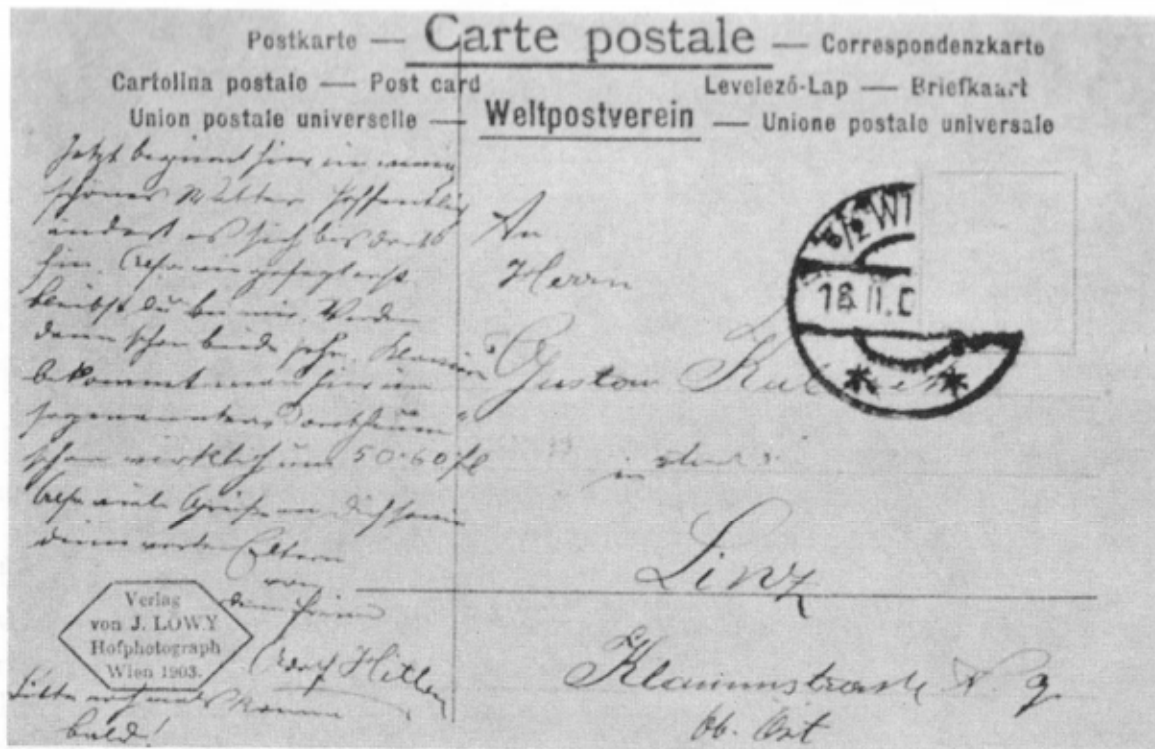 Postkarte — Carte postale — Correspondenzkarte
Cartolina postale — Post card Levelező-Lap — Briefkaart
Union postale universelle — Weltpostverein — Unione postale universale
Jetzt beginnt hier ein
schönes Wetter hoffentlich
ändert es sich bis dorthin
hin. Also wie gesagt erst
bleibst du bei mir. Werden
dann schon beide sehn. Klavier
bekommt man hier im
sogenannten "Dorotheum"
schon wirklich um 50-60 fl
Also viele Grüße an Dich sowie
deine werten Eltern
von
deinem Freund
Adolf Hitler
Bitte nochmals komme
bald!
Verlag
von J. LÖWY
Hofphotograph
Wien 1903.
An
Herrn
Gustav
in
Linz
Klammstrasse N. 9
Ob. Öst
18 II.